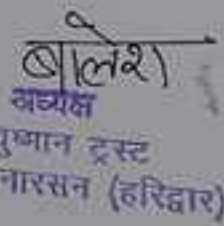 बालेश
अध्यक्ष
युष्मान ट्रस्ट
नारसन (हरिद्वार)